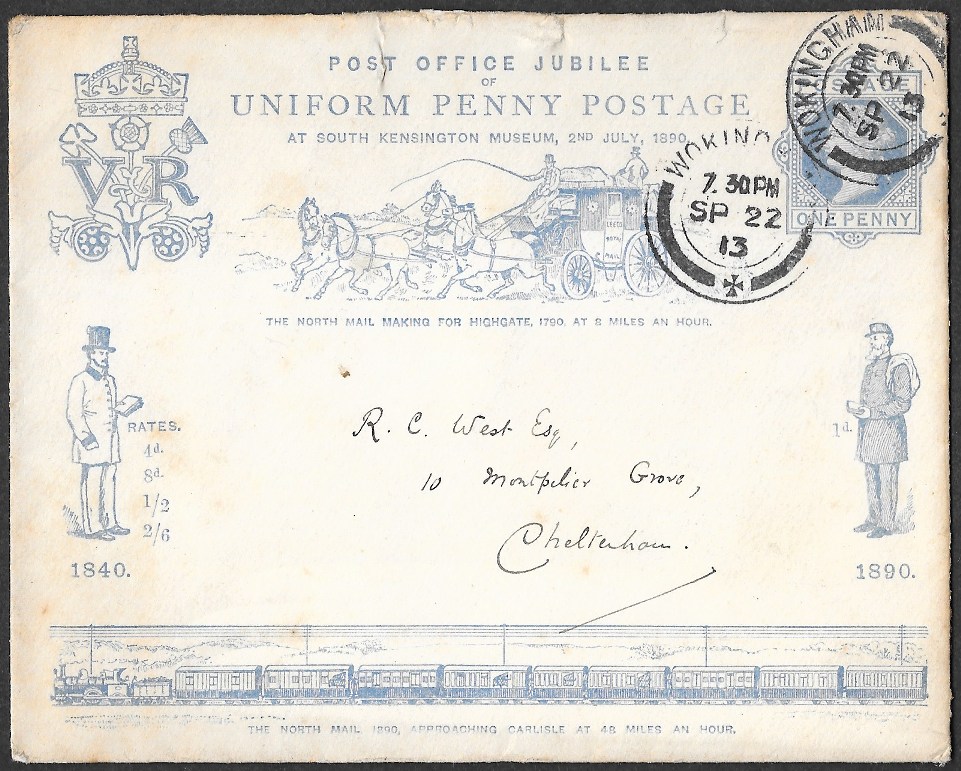 POST OFFICE JUBILEE
OF
UNIFORM PENNY POSTAGE
AT SOUTH KENSINGTON MUSEUM, 2ND JULY, 1890.
VR
WOKINGHAM
7.30PM
SP 22
13
WOKING
7.30PM
SP 22
13
ONE PENNY
LEEDS
ROYAL
MAIL
THE NORTH MAIL MAKING FOR HIGHGATE, 1790, AT 8 MILES AN HOUR.
RATES.
4d.
8d.
1/2
2/6
1840.
1d.
1890.
R. C. West Esq,
10 Montpelier Grove,
Cheltenham.
THE NORTH MAIL 1890, APPROACHING CARLISLE AT 48 MILES AN HOUR.